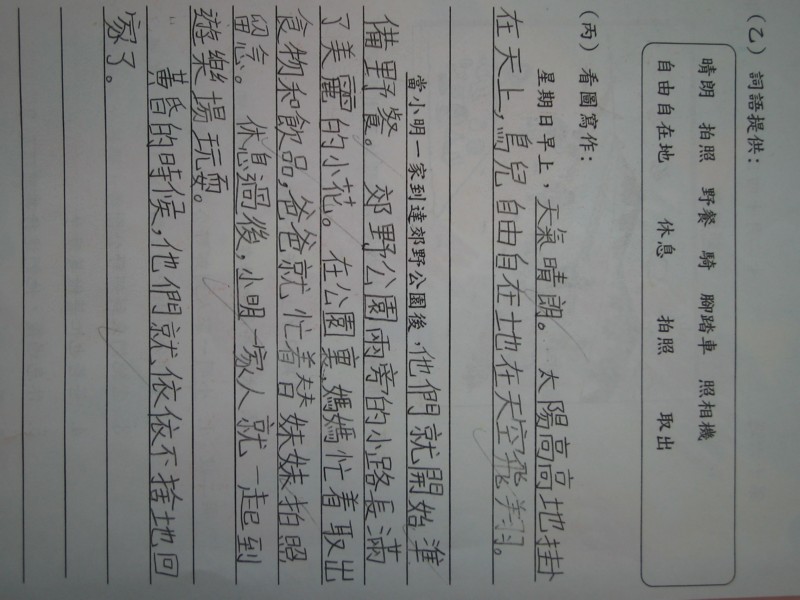 (乙) 詞語提供：
晴朗 拍照 野餐 騎 腳踏車 照相機
自由自在地 休息 拍照 取出
(丙) 看圖寫作：
星期日早上，天氣晴朗。太陽高高地掛
在天上，鳥兒自由自在地在天空飛翔。
當小明一家到達郊野公園後，他們就開始準
備野餐。郊野公園兩旁的小路長滿
了美麗的小花。在公園裏，媽媽忙着取出
食物和飲品，爸爸就忙着替妹妹拍照
留念。休息過後，小明一家人就一起到
遊樂場玩耍。
黃昏的時候，他們就依依不捨地回
家了。